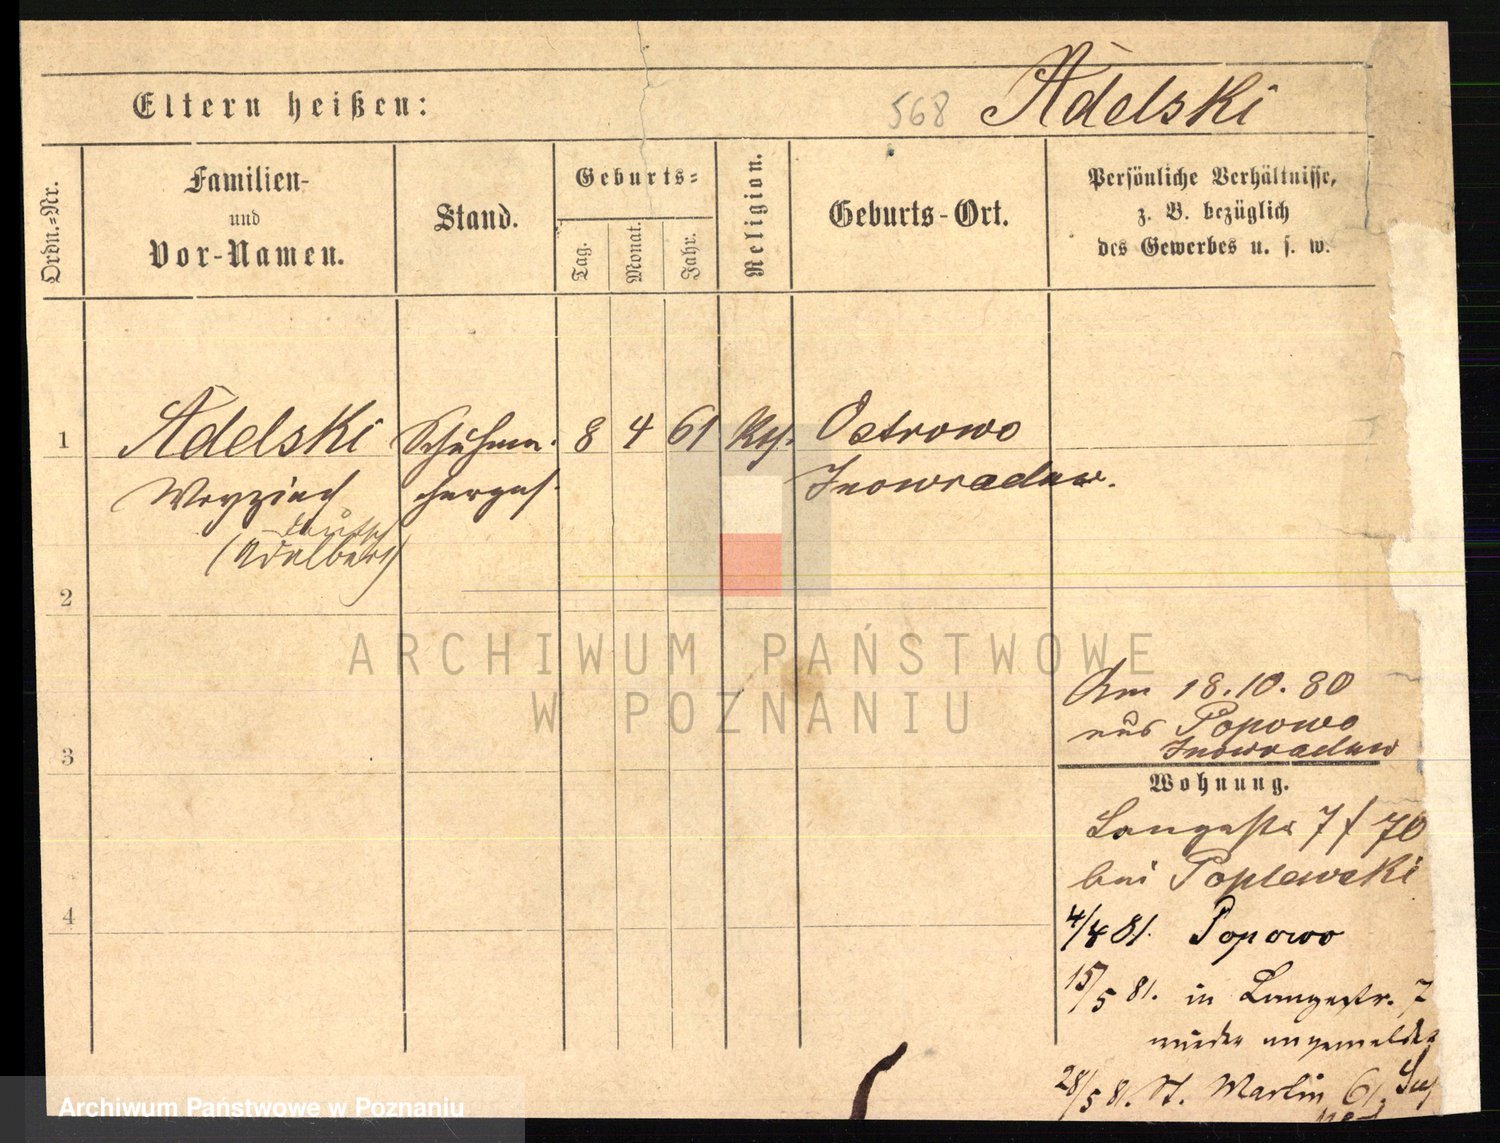 Eltern heißen: 568 Adelski
Ordn.=Nr.
Familien-
und
Vor-Namen.
Stand.
Geburts=
Tag.
Monat.
Jahr.
Religion.
Geburts-Ort.
Persönliche Verhältnisse,
z. B. bezüglich
des Gewerbes u. s. w.
1 Adelski Schuhma- 8 4 61 Kth. Ostrowo
Woyziech cherges. Inowraclaw.
deutsch
(Adelbert)
2
ARCHIWUM PAŃSTWOWE
W POZNANIU
Am 18.10.80
aus Popowo
Inowraclaw
3
Wohnung.
Langestr 7 f 70
bei Poplawski
4
4/4 81. Popowo
15/5 81. in Langestr. 7
wieder angemeldet
28/5 81. St. Martin 61.
Archiwum Państwowe w Poznaniu